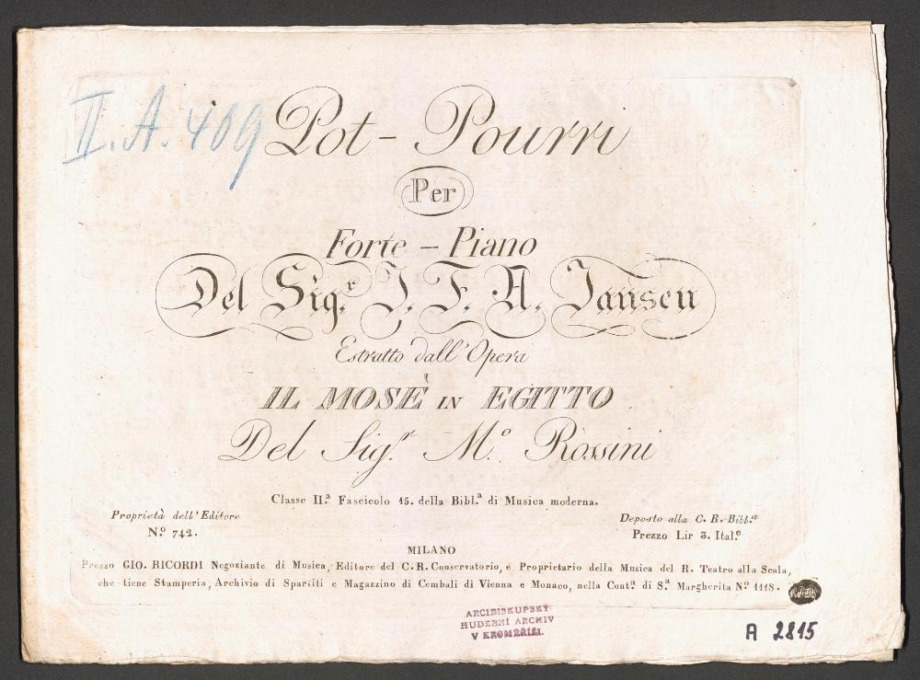 II. A. 409
Pot-Pourri
Per
Forte-Piano
Del Sig.r J. F. A. Jansen
Estratto dall'Opera
IL MOSÈ IN EGITTO
Del Sig.r M.o Rossini
Classe II.a Fascicolo 15. della Bibl.a di Musica moderna.
Proprietà dell'Editore
N.o 742.
Deposto alla C. R. Bibl.a
Prezzo Lir 3. Ital.e
MILANO
Presso GIO. RICORDI Negoziante di Musica, Editore del C. R. Conservatorio, e Proprietario della Musica del R. Teatro alla Scala,
che tiene Stamperia, Archivio di Spartiti e Magazzino di Cembali di Vienna e Monaco, nella Cont.a di S.a Margherita N.o 1118.
ARCIBISKUPSKÝ
HUDEBNÍ ARCHIV
V KROMĚŘÍŽI.
A 2815